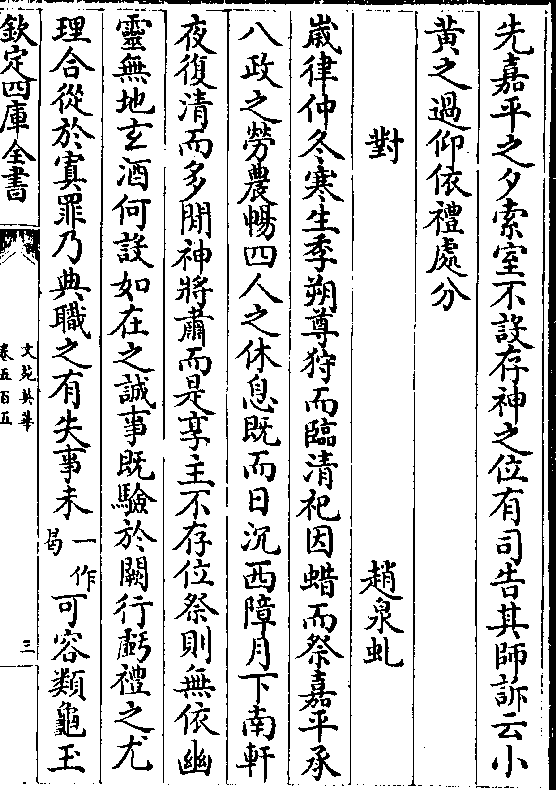 先嘉平之夕索室不設存神之位有司告其師訴云小
黄之過仰依禮處分
對　趙泉虬
嵗律仲冬寒生季朔尊狩而臨清祀因蜡而祭嘉平承
八政之勞農暢四人之休息既而日沉西障月下南軒
夜復清而多閒神將肅而是享主不存位祭則無依幽
靈無地玄酒何設如在之誠事既驗於闕行虧禮之尤
理合從於寘罪乃典職之有失事未一作曷可容類龜玉
欽定四庫全書
文苑英華
卷五百五
三